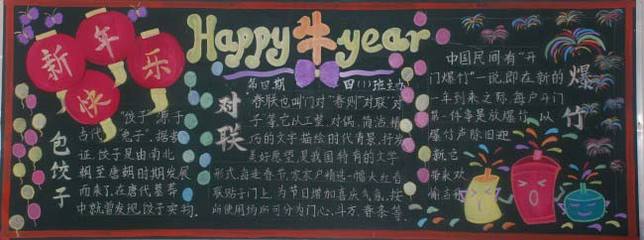 新年快乐
Happy牛year
第四期 四(1)班主办
包饺子
"饺子"源于
古代"
证,饺子是由南北
朝至唐朝时期发展
而来了,在唐代墓葬
中就曾发现饺子实物.
对联
春联也叫门对"春贴"对联"对
子,它以工整、对偶、简洁、精
巧的文字描绘时代背景,抒发
美好愿望,是我国特有的文学
形式,每逢春节,家家户户精选一幅大红春
联贴于门上,为节日增加喜庆气氛.按
所使用场所可分为门心、斗方、春条等.
爆竹
中国民间有"开
门爆竹"一说.即在新的
一年到来之际,每户开门
第一件事是放爆竹,以
爆竹声除旧迎
新.它
带来欢
愉